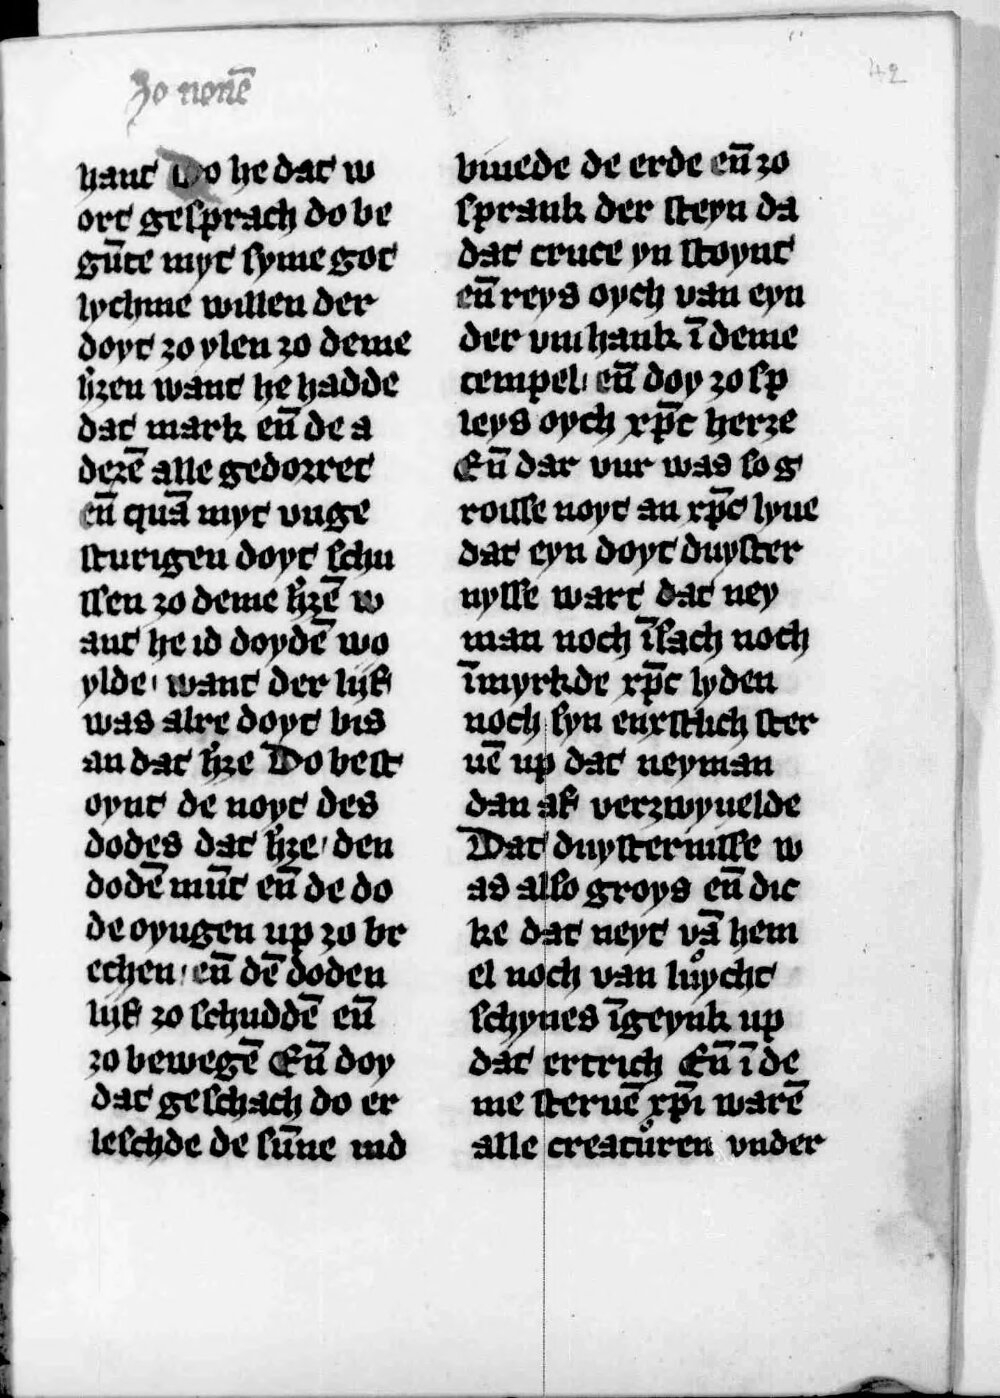 zo nonē
42
hant Do he dat w
ort gesprach do be
gūte myt syme got
lychme willen der
doyt zo ylen zo deme
h'zen want he hadde
dat mark eñ de a
derē alle gedorret
eñ quā myt vnge
sturigen doyt schu
ssen zo deme h'zē w
ant he id doydē wo
ylde want der lijf
was alre doyt bis
an dat h'ze Do best
oynt de noyt des
dodes dat h'ze den
dodē mūt eñ de do
de oyugen up zo br
echen eñ dē doden
lijf zo schuddē eñ
zo bewegē Eñ doy
dat geschach do er
leschde de sūne ind
biuede de erde eñ zo
sprank der steyn da
dat cruce yn stoynt
eñ reys oych van eyn
der vmhank ī deme
tempel eñ doy zo sp
leys oych xp̄c herze
Eñ dar vur was so g
roisse noyt an xp̄c lyue
dat eyn doyt duyster
nysse wart dat ney
man noch īsach noch
īmyrkde xp̄c lyden
noch syn enxstlich ster
uē up dat neyman
dan af verzwyuelde
Dat duysternisse w
as also groys eñ dic
ke dat neyt vā hem
el noch van luͦycht
schynes īgeynk up
dat ertrich Eñ ī de
me steruē xp̄i warē
alle creatuͦren vnder